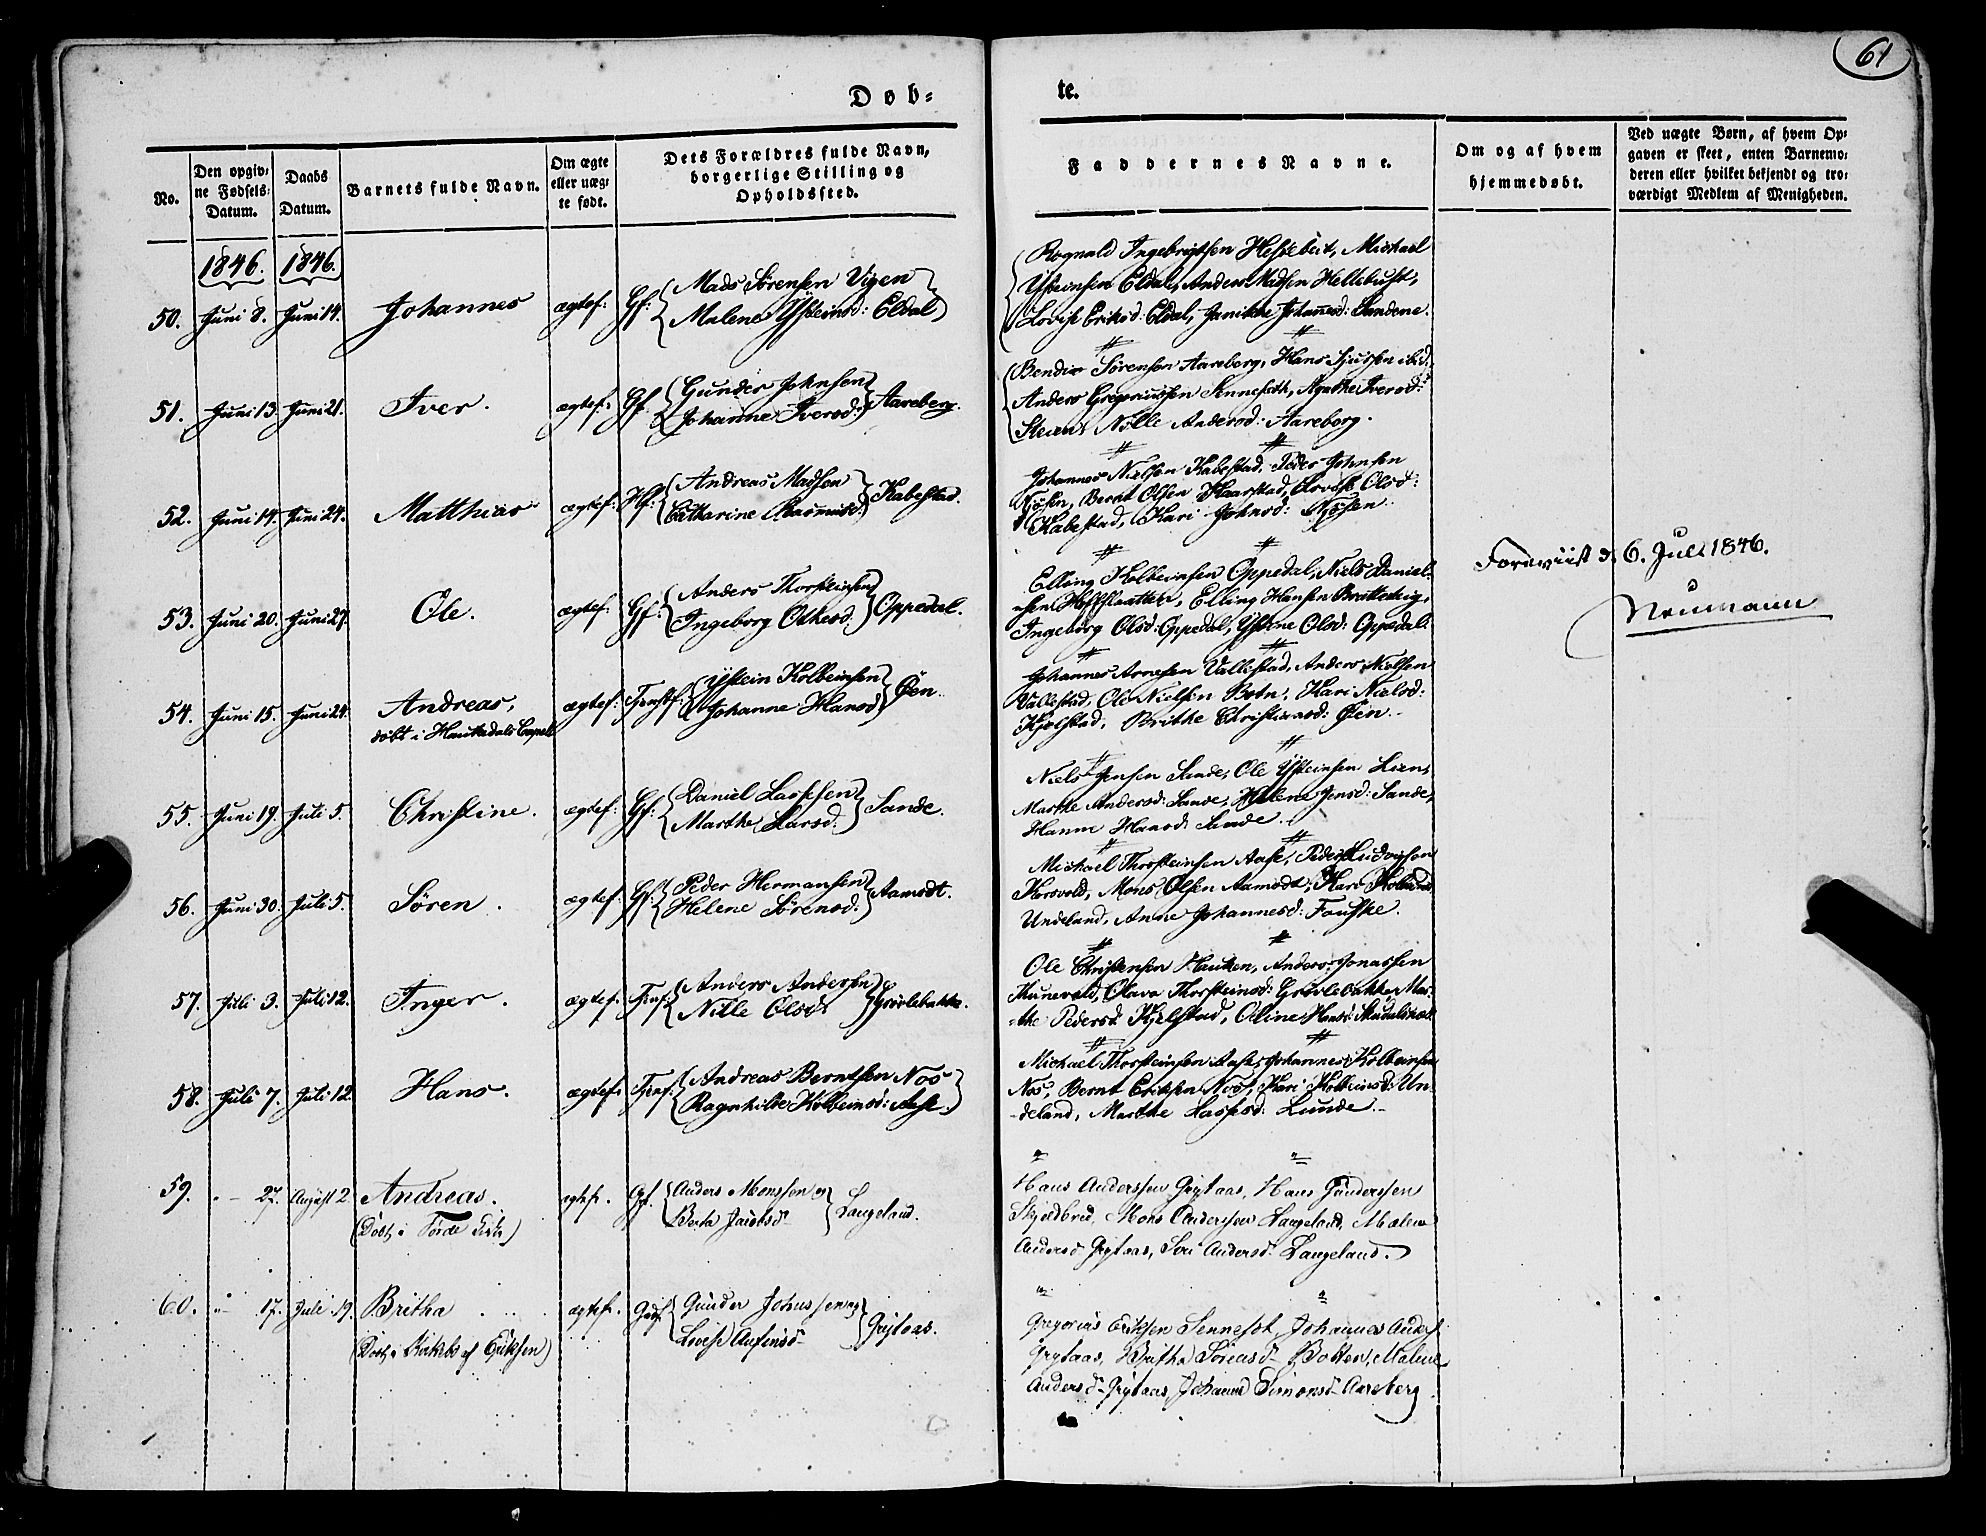 61
Døb-
te.
No.
Den opgiv-
ne Fødsels-
Datum.
Daabs
Datum.
Barnets fulde Navn.
Om ægte
eller uæg-
te født.
Dets Forældres fulde Navn,
borgerlige Stilling og
Opholdssted.
Faddernes Navne.
Om og af hvem
hjemmedøbt.
Ved uægte Børn, af hvem Op-
gaven er skeet, enten Barnemo-
deren eller hvilket bekjendt og tro-
værdigt Medlem af Menigheden.
1846. 1846.
50. Juni 8. Juni 14. Johannes ægtef: Gf: Mads Sørensen Vigen
Malene Ysteinsd: Eldal
Rognald Ingebrigtsen Hestebeit, Michael
Ysteinsen Eldal, Anders Madsen Hellebust,
Lovise Eriksd: Eldal, Janikke Johannesd: Sandene.
51. Juni 13. Juni 21. Iver. ægtef: Gf. Gunder Johnsen
Johanne Iversd: Aareberg.
Bendix Sørensen Aareberg, Hans Sjursen ibid.
Anders Gregoriussen Sennesæth, Agathe Iversd:
Steien, Nille Andersd: Aareberg.
52. Juni 14. Juni 24. Matthias ægtef: Hf: Andreas Madsen
Catharine Rasmusd: Habestad.
Johannes Nielsen Habestad, Peder Johnsen
Nøsen, Bernt Olsen Haarstad, Lovise Olsd:
Habestad, Kari Johnsd: Nøsen.
53. Juni 20. Juni 27. Ole. ægtef: Gf: Anders Thorsteinsen
Ingeborg Olsd: Oppedal.
Elling Kolbeinsen Oppedal, Niels Daniel-
sen Hofslætten, Elling Hansen Bratteteig,
Ingeborg Olsd: Oppedal, Ystine Olsd: Oppedal.
Foreviist d. 6. Juli 1846.
Neumann
54. Juni 15. Juni 24. Andreas, ægtef: Tjenstf: Ystein Kolbeinsen
døbt i Haukedals Capel Johanne Hansd: Øen.
Johannes Arnesen Vallestad, Anders Nielsen
Vallestad, Ole Nielsen Botn, Kari Nielsd:
Kjelstad, Brithe Christensd: Øen.
55. Juni 19. Juli 5. Christine. ægtef: Gf: Daniel Lassesen
Marthe Larsd: Sande.
Niels Jensen Sande, Ole Ysteinsen Lien,
Marthe Andersd: Sande, Helene Jensd: Sande,
Hanne Hansd: Sande.
56. Juni 30. Juli 5. Søren. ægtef: Gf: Peder Hermansen
Helene Sørensd: Aamodt.
Michael Thorsteinsen Aase, Peder Ludvigsen
Horsvold, Mons Olsen Aamodt, Kari Kolbeinsd:
Undeland, Anne Johannesd: Fouske.
57. Juli 3. Juli 12. Inger. ægtef: Tjenf: Anders Andersen
Nille Olsd: Grøvlebakke.
Ole Christensen Hauken, Anders Jonassen
Thunevald, Olava Thorsteinsd: Grøvlebakke, Mar-
the Pedersd: Kjelstad, Oline Hansd:
58. Juli 7. Juli 12. Hans. ægtef: Tjenf: Andreas Berntsen Nos
Ragnhilde Kolbeinsd: Aase.
Michael Thorsteinsen Aase, Johannes Kolbeinsen
Nos, Bernt Eriksen Nos, Kari Kolbeinsd: Un-
deland, Marthe Lassesd: Lunde.
59. " 27. August 2 Andreas. ægtef. Gf. Anders Monssen og
(Døbt i Førde Kirke) Berta Jacobsd Langeland.
Hans Anderssen Grytaas, Hans Gunderssen
Skjeldbred, Mons Anderssen Langeland, Malene
Andersd Grytaas, Siri Andersd Langeland.
60. " 17. Juli 19. Britha ægtef. Gudf. Gunder Johnssen og
af Eriksen) Lovise Grytaas.
Gregorius Eriksen Sennesæt, Johannes Anders
Grytaas, Britha Sørensd Botten, Malene
Andersd Grytaas, Johanne Simonsd Aareberg.